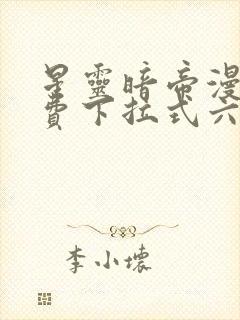 星靈暗帝漫
費下拉式六
李小壞